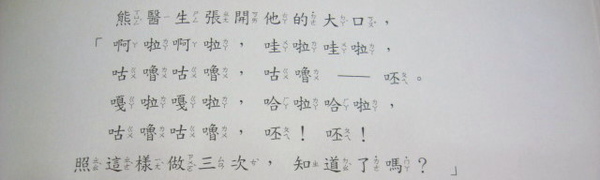 熊醫生張開他的大口，
「啊啦啊啦，哇啦哇啦，
咕嚕咕嚕，咕嚕——呸。
嘎啦嘎啦，哈啦哈啦，
咕嚕咕嚕，呸！呸！
照這樣做三次，知道了嗎？」